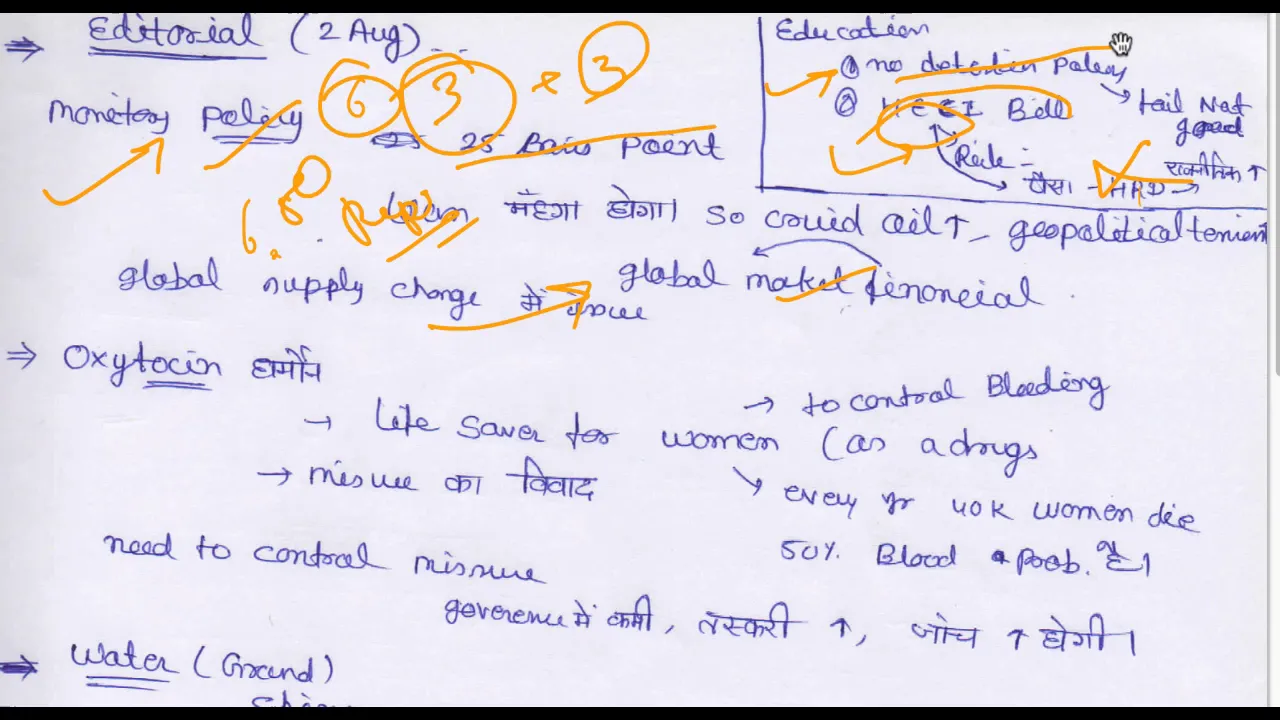 ⇒ Editorial (2 Aug)...
Education
① no detention Policy
→ fail Not good
② HECI Bill
Risk :-
पैसा - HRD →
राजनीतिक ↑
6 3 × 3
Monetory Policy 25 Basis Point
6.8
Loan मँहगा होगा। So couid oil ↑, geopolitical tenient
global supply change में issue
global market financial
⇒ Oxytocin हार्मोन
→ life saver for women (as a drugs
→ to control Bleeding
→ misuse का विवाद
↘ every yr 40K women die
50% Blood Prob. से है।
need to control misuse
goverence में कमी, तस्करी ↑, जाँच ↑ होगी।
⇒ Water (Ground)